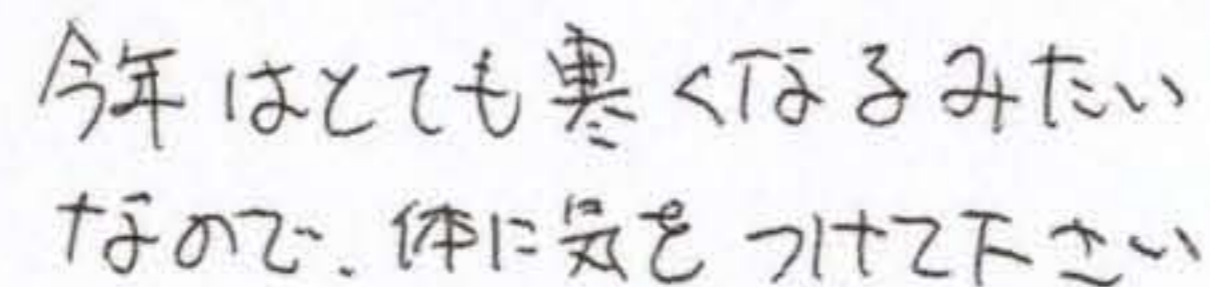 今年はとても寒くなるみたい
なので、体に気をつけて下さい